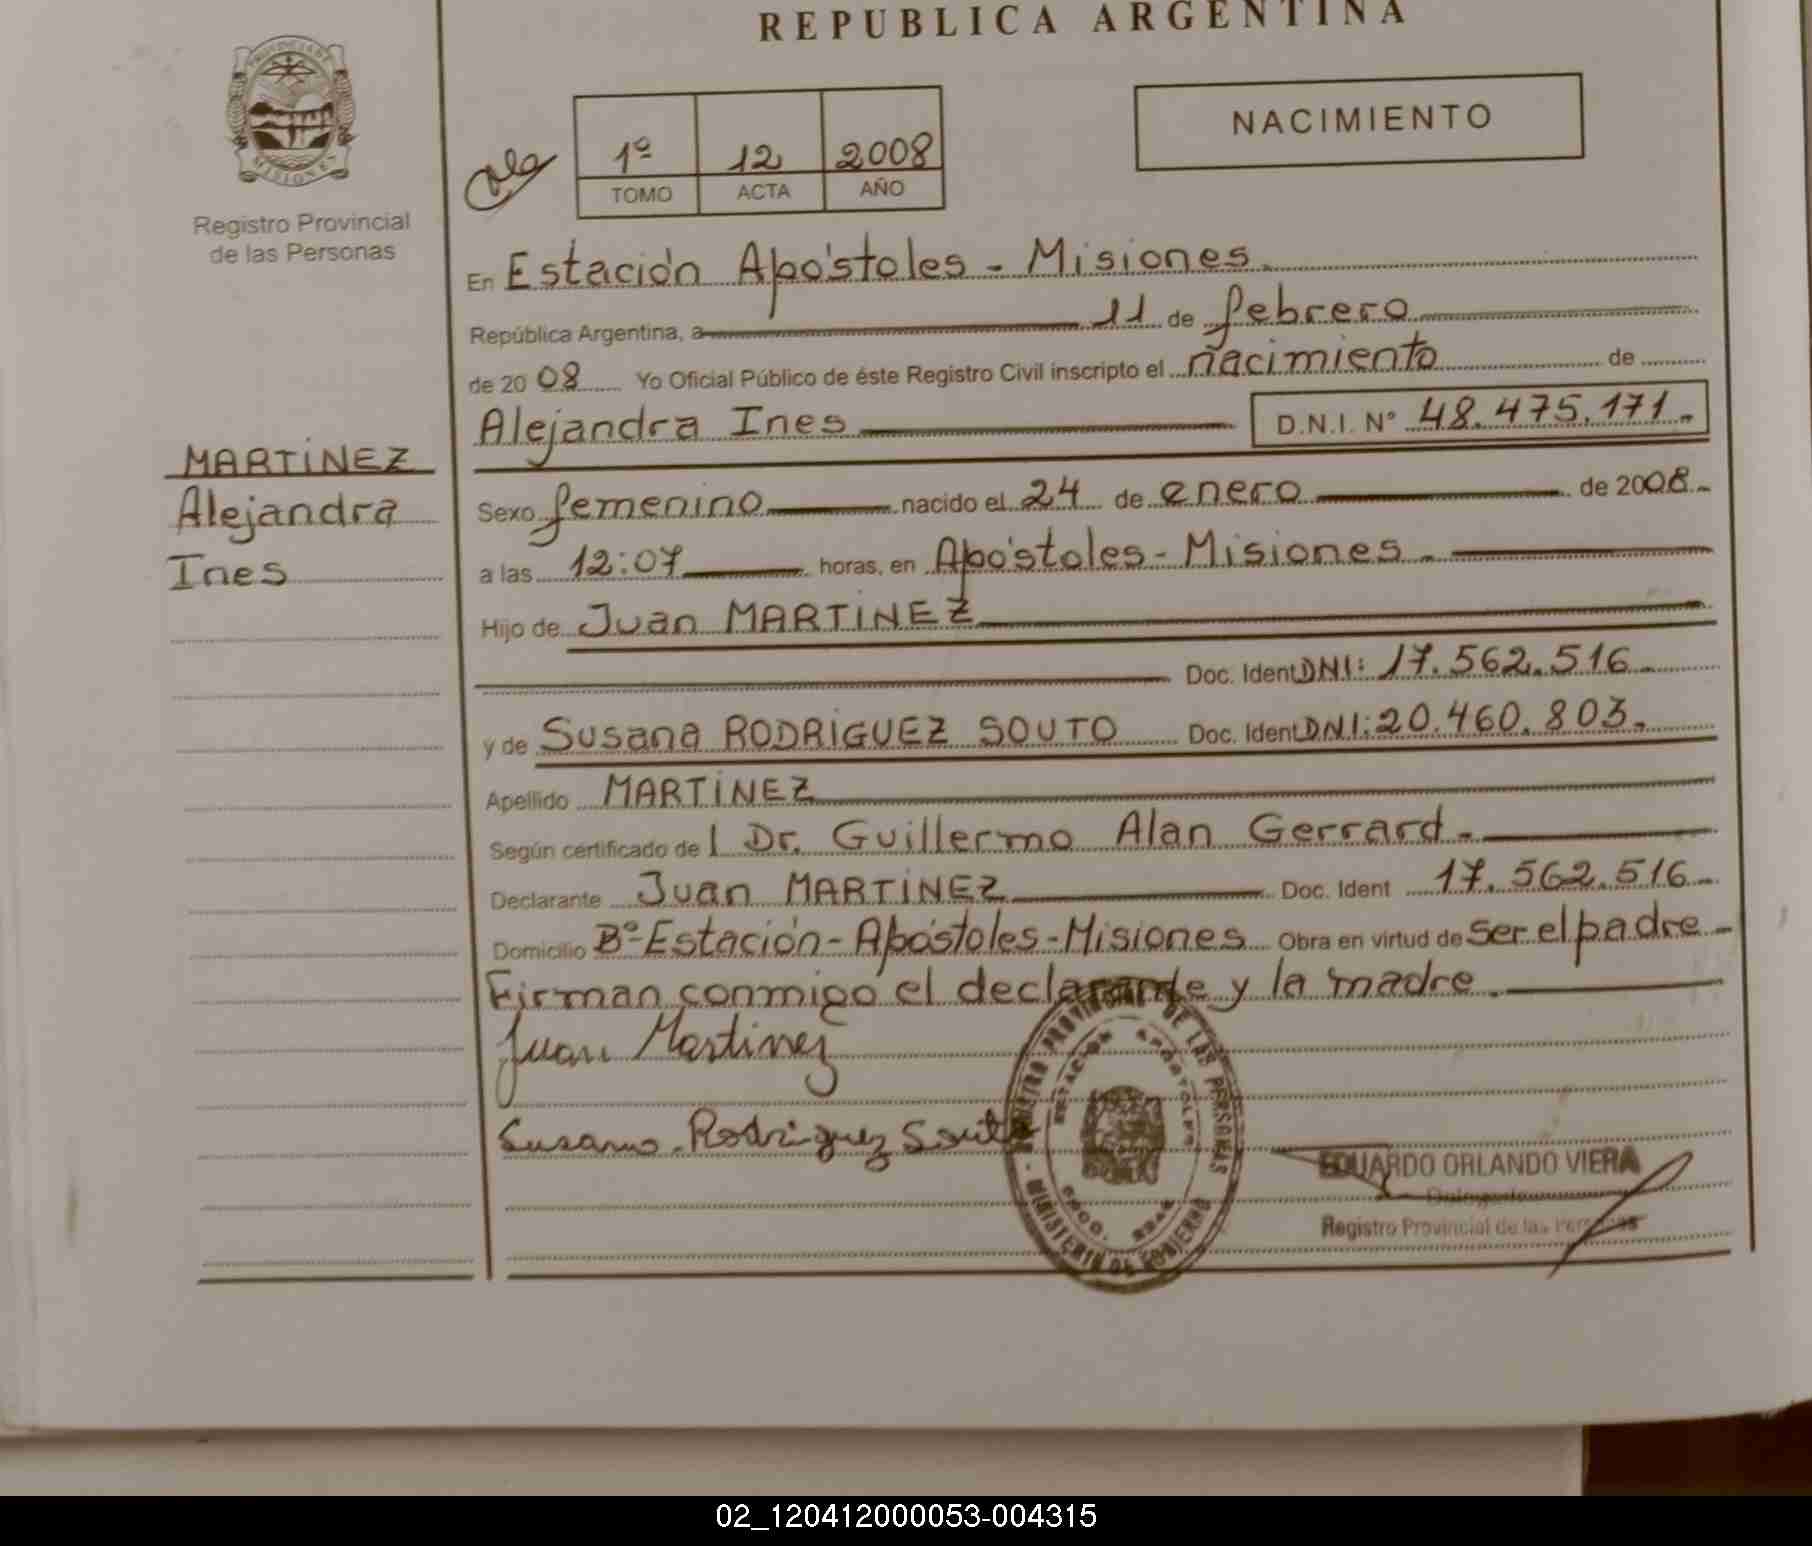 REPUBLICA ARGENTINA
PROVINCIA DE MISIONES
Registro Provincial
de las Personas
1º 12 2008
TOMO ACTA AÑO
NACIMIENTO
En Estación Apóstoles - Misiones
República Argentina, a 11 de febrero
de 20 08 Yo Oficial Público de éste Registro Civil inscripto el nacimiento de
Alejandra Ines D.N.I. Nº 48.475.171.-
MARTINEZ
Alejandra
Ines
Sexo femenino nacido el 24 de enero de 2008.-
a las 12:07 horas, en Apóstoles - Misiones.-
Hijo de Juan MARTINEZ
Doc. Ident DNI: 17.562.516.-
y de Susana RODRIGUEZ SOUTO Doc. Ident DNI: 20.460.803.-
Apellido MARTINEZ
Según certificado de l Dr. Guillermo Alan Gerrard.-
Declarante Juan MARTINEZ Doc. Ident 17.562.516.-
Domicilio Bº Estación - Apóstoles - Misiones Obra en virtud de ser el padre.-
Firman conmigo el declarante y la madre.
Juan Martinez
Susana Rodriguez Souto
REGISTRO PROVINCIAL DE LAS PERSONAS - MINISTERIO DE GOBIERNO
ESTACION APOSTOLES
EDUARDO ORLANDO VIERA
Delegado
Registro Provincial de las Personas
02_120412000053-004315